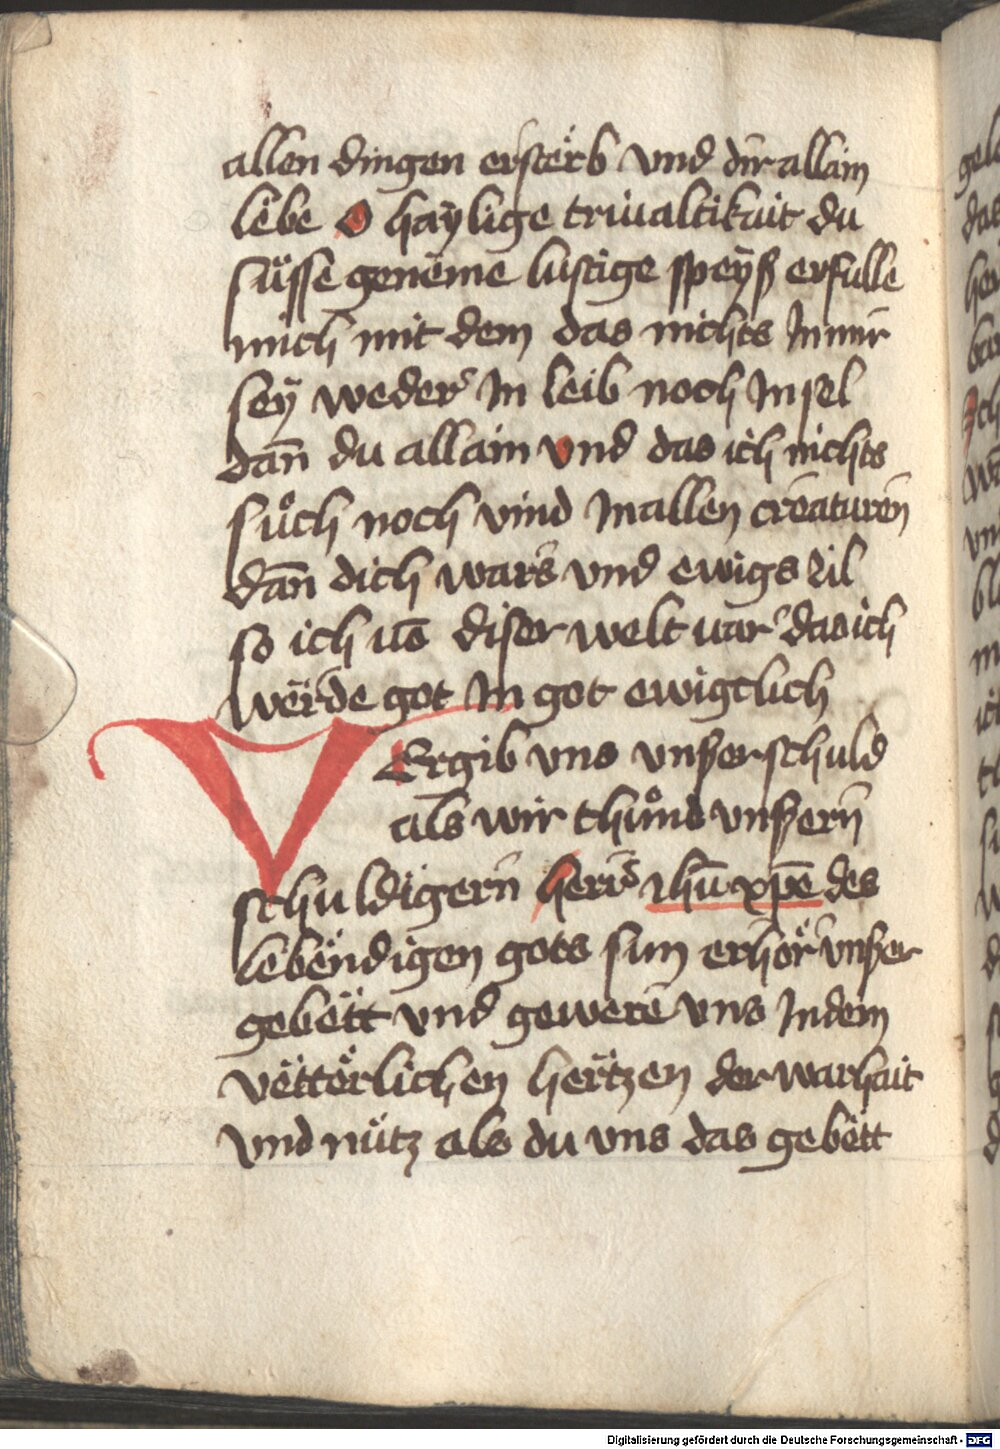 allen dingen ersterb vnd dir allain
lebe O haÿlige triualtikait du
süsse geneme lustige speÿß erfulle
mich mit dem das nichts In mir
seÿ weder In leib noch In sel
dan̄ du allain vnd das ich nichts
sůch noch vind In allen creaturen
dan̄ dich wars vnd ewigs zil
so ich us diser welt uar das ich
werde got In got ewigclich
VErgib vns vnßer schuld
als wir thůnd vnßern
schuldigern herr ihū xpē des
lebendigen gots sun erhör vnßer
gebett vnd gewere vns In dem
vëtterlichen hertzen der warhait
vnd nütz als du vns das gebett
Digitalisierung gefördert durch die Deutsche Forschungsgemeinschaft - DFG